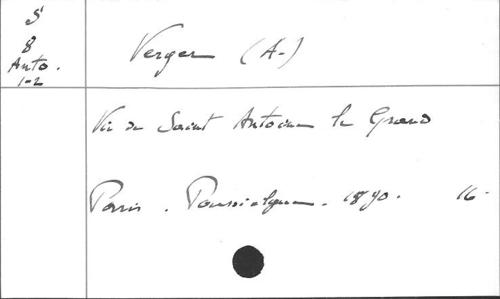 S
8
Anto.
1-2
Verger (A-)
Vie de Saint Antoine le Grand
Paris. Poussielgue. 1890. 16